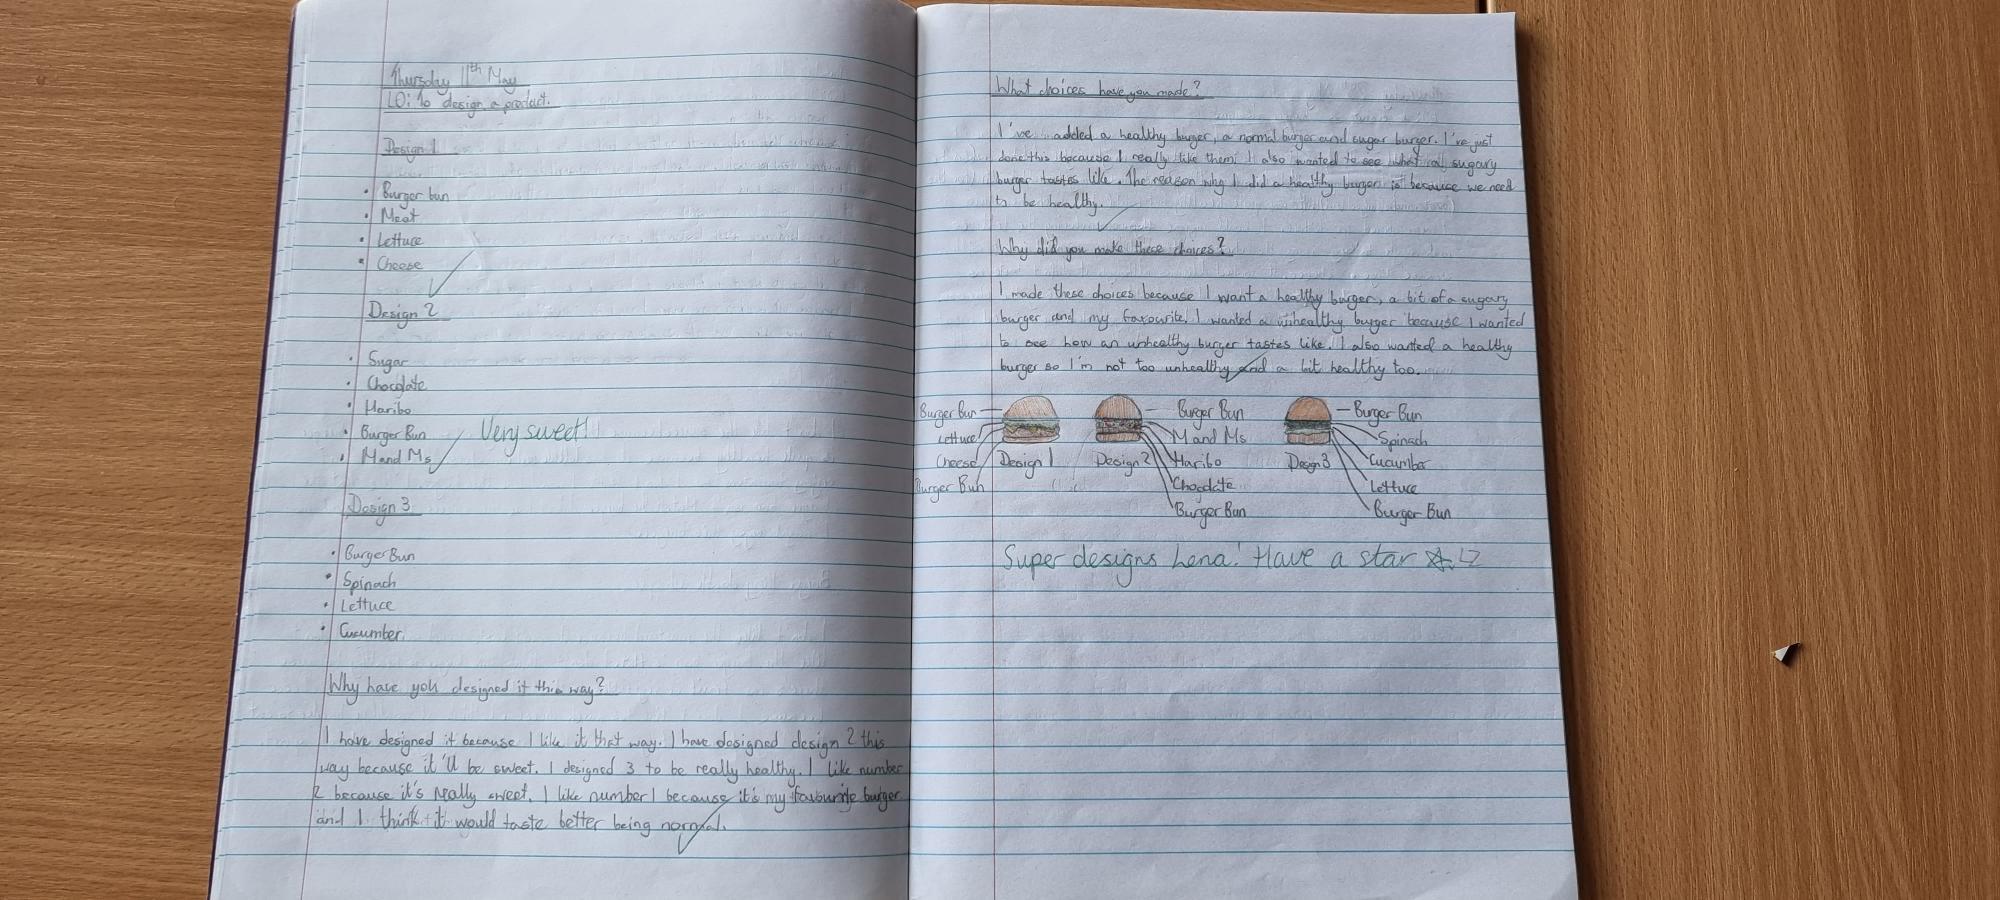 Thursday 11th May
LO: To design a product.
Design 1
• Burger bun
• Meat
• Lettuce
• Cheese
Design 2
• Sugar
• Chocolate
• Haribo
• Burger Bun
• M and Ms
Very sweet!
Design 3
• Burger Bun
• Spinach
• Lettuce
• Cucumber
Why have you designed it this way?
I have designed it because I like it that way. I have designed design 2 this
way because it'll be sweet. I designed 3 to be really healthy. I like number
2 because it's really sweet. I like number 1 because it's my favourite burger
and I think it would taste better being normal.
What choices have you made?
I've added a healthy burger, a normal burger and sugar burger. I've just
done this because I really like them. I also wanted to see what a sugary
burger tastes like. The reason why I did a healthy burger is because we need
to be healthy.
Why did you make these choices?
I made these choices because I want a healthy burger, a bit of a sugary
burger and my favourite. I wanted a unhealthy burger because I wanted
to see how an unhealthy burger tastes like. I also wanted a healthy
burger so I'm not too unhealthy and a bit healthy too.
Burger Bun
Lettuce
Cheese
Burger Bun
Design 1
Burger Bun
M and Ms
Haribo
Chocdate
Burger Bun
Design 2
Burger Bun
Spinach
Cucumber
Lettuce
Burger Bun
Design 3
Super designs Lena! Have a star